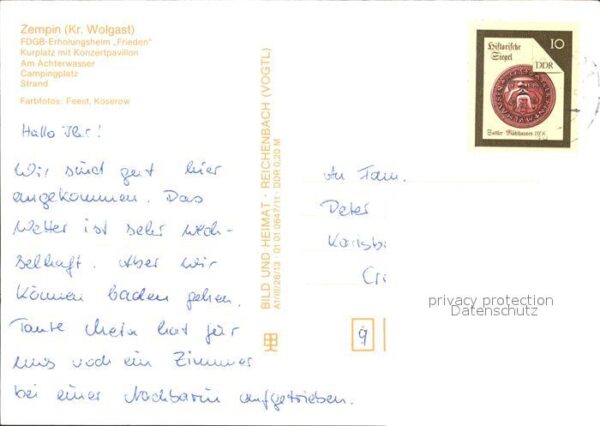 Zempin (Kr. Wolgast)
FDGB-Erholungsheim „Frieden"
Kurplatz mit Konzertpavillon
Am Achterwasser
Campingplatz
Strand
Farbfotos: Feest, Koserow
Hallo Ihr!
Wir sind gut hier
angekommen. Das
Wetter ist sehr wech-
selhaft. Aber wir
können baden gehen.
Tante Meta hat für
uns noch ein Zimmer
bei einer Nachbarin aufgetrieben.
BILD UND HEIMAT · REICHENBACH (VOGTL)
A1/III/26/13 01 01 0647/11 · DDR 0,20 M
Historische
Siegel
10
DDR
Sattler Mühlhausen
An Fam.
Peter
Cri
9
privacy protection
Datenschutz